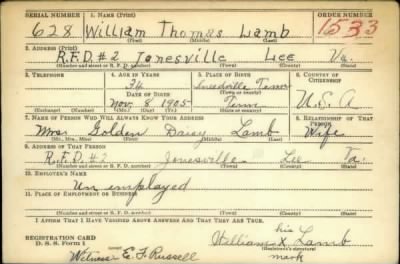 SERIAL NUMBER 1. NAME (Print) ORDER NUMBER
628 William Thomas Lamb 1533
(First) (Middle) (Last)
2. ADDRESS (Print)
R.F.D. #2 Jonesville Lee Va.
(Number and street or R. F. D. number) (Town) (County) (State)
3. TELEPHONE 4. AGE IN YEARS 5. PLACE OF BIRTH 6. COUNTRY OF CITIZENSHIP
34 Sneedville Tenn
DATE OF BIRTH (Town or county)
Nov. 8 1905 Tenn U.S.A
(Exchange) (Number) (Mo.) (Day) (Yr.) (State or country)
7. NAME OF PERSON WHO WILL ALWAYS KNOW YOUR ADDRESS 8. RELATIONSHIP OF THAT PERSON
Mrs. Golden Daisy Lamb Wife
(Mr., Mrs., Miss) (First) (Middle) (Last)
9. ADDRESS OF THAT PERSON
R.F.D. #2 Jonesville Lee Va.
(Number and street or R. F. D. number) (Town) (County) (State)
10. EMPLOYER'S NAME
Un employed
11. PLACE OF EMPLOYMENT OR BUSINESS
(Number and street or R. F. D. number) (Town) (County) (State)
I AFFIRM THAT I HAVE VERIFIED ABOVE ANSWERS AND THAT THEY ARE TRUE.
his
REGISTRATION CARD William X Lamb
D. S. S. Form 1 (Registrant's signature)
Witness E. F. Russell mark